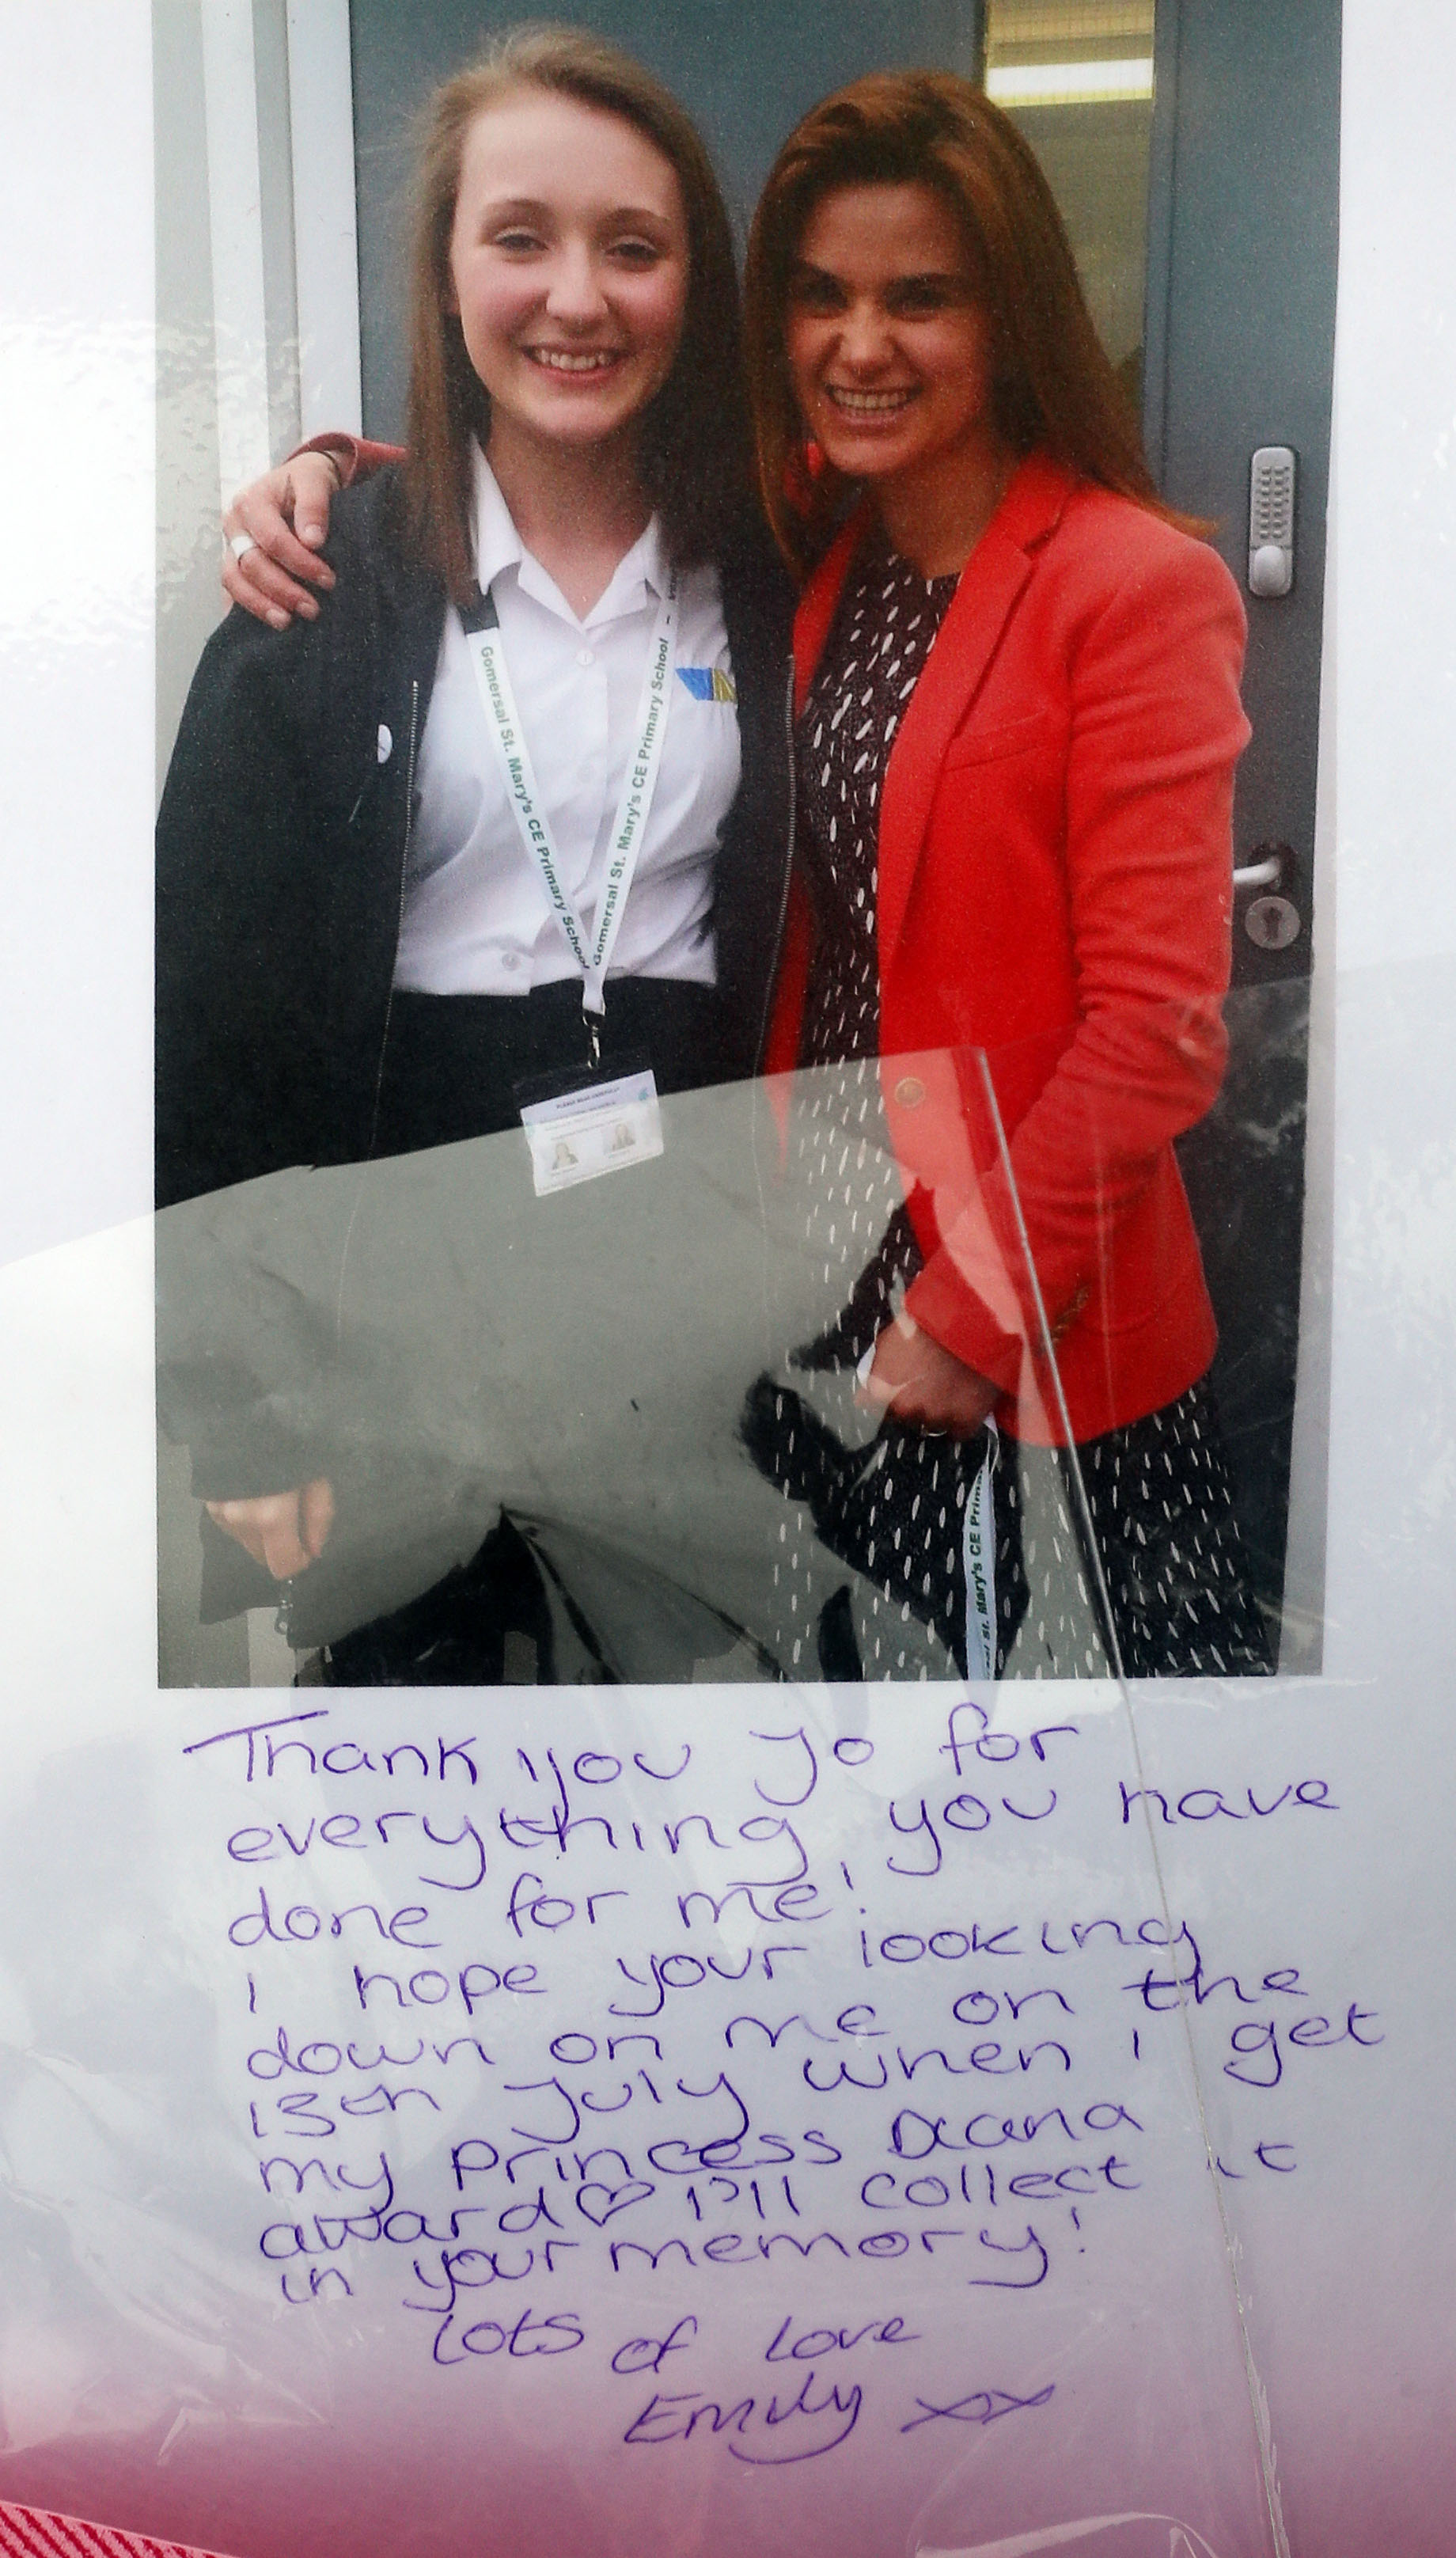 Gomersal St. Mary's CE Primary School
Gomersal St. Mary's CE Primary School
St. Mary's CE Prim
Thank you Jo for
everything, you have
done for me!
I hope your looking
down on me on the
13th July when I get
my Princess Diana
award♡ I'll collect it
in your memory!
Lots of Love
Emily xx